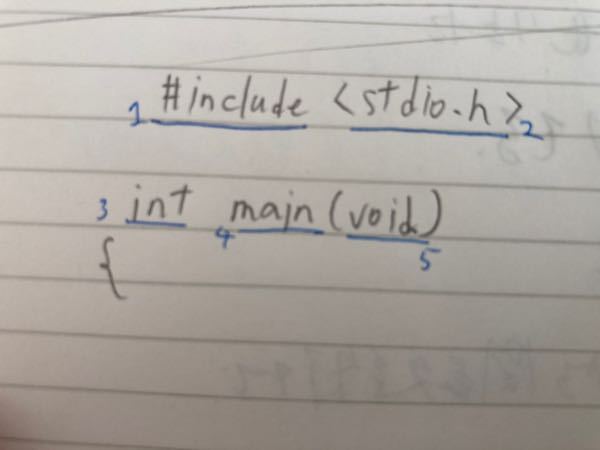 1 #include <stdio.h> 2
3 int 4 main (void) 5
{